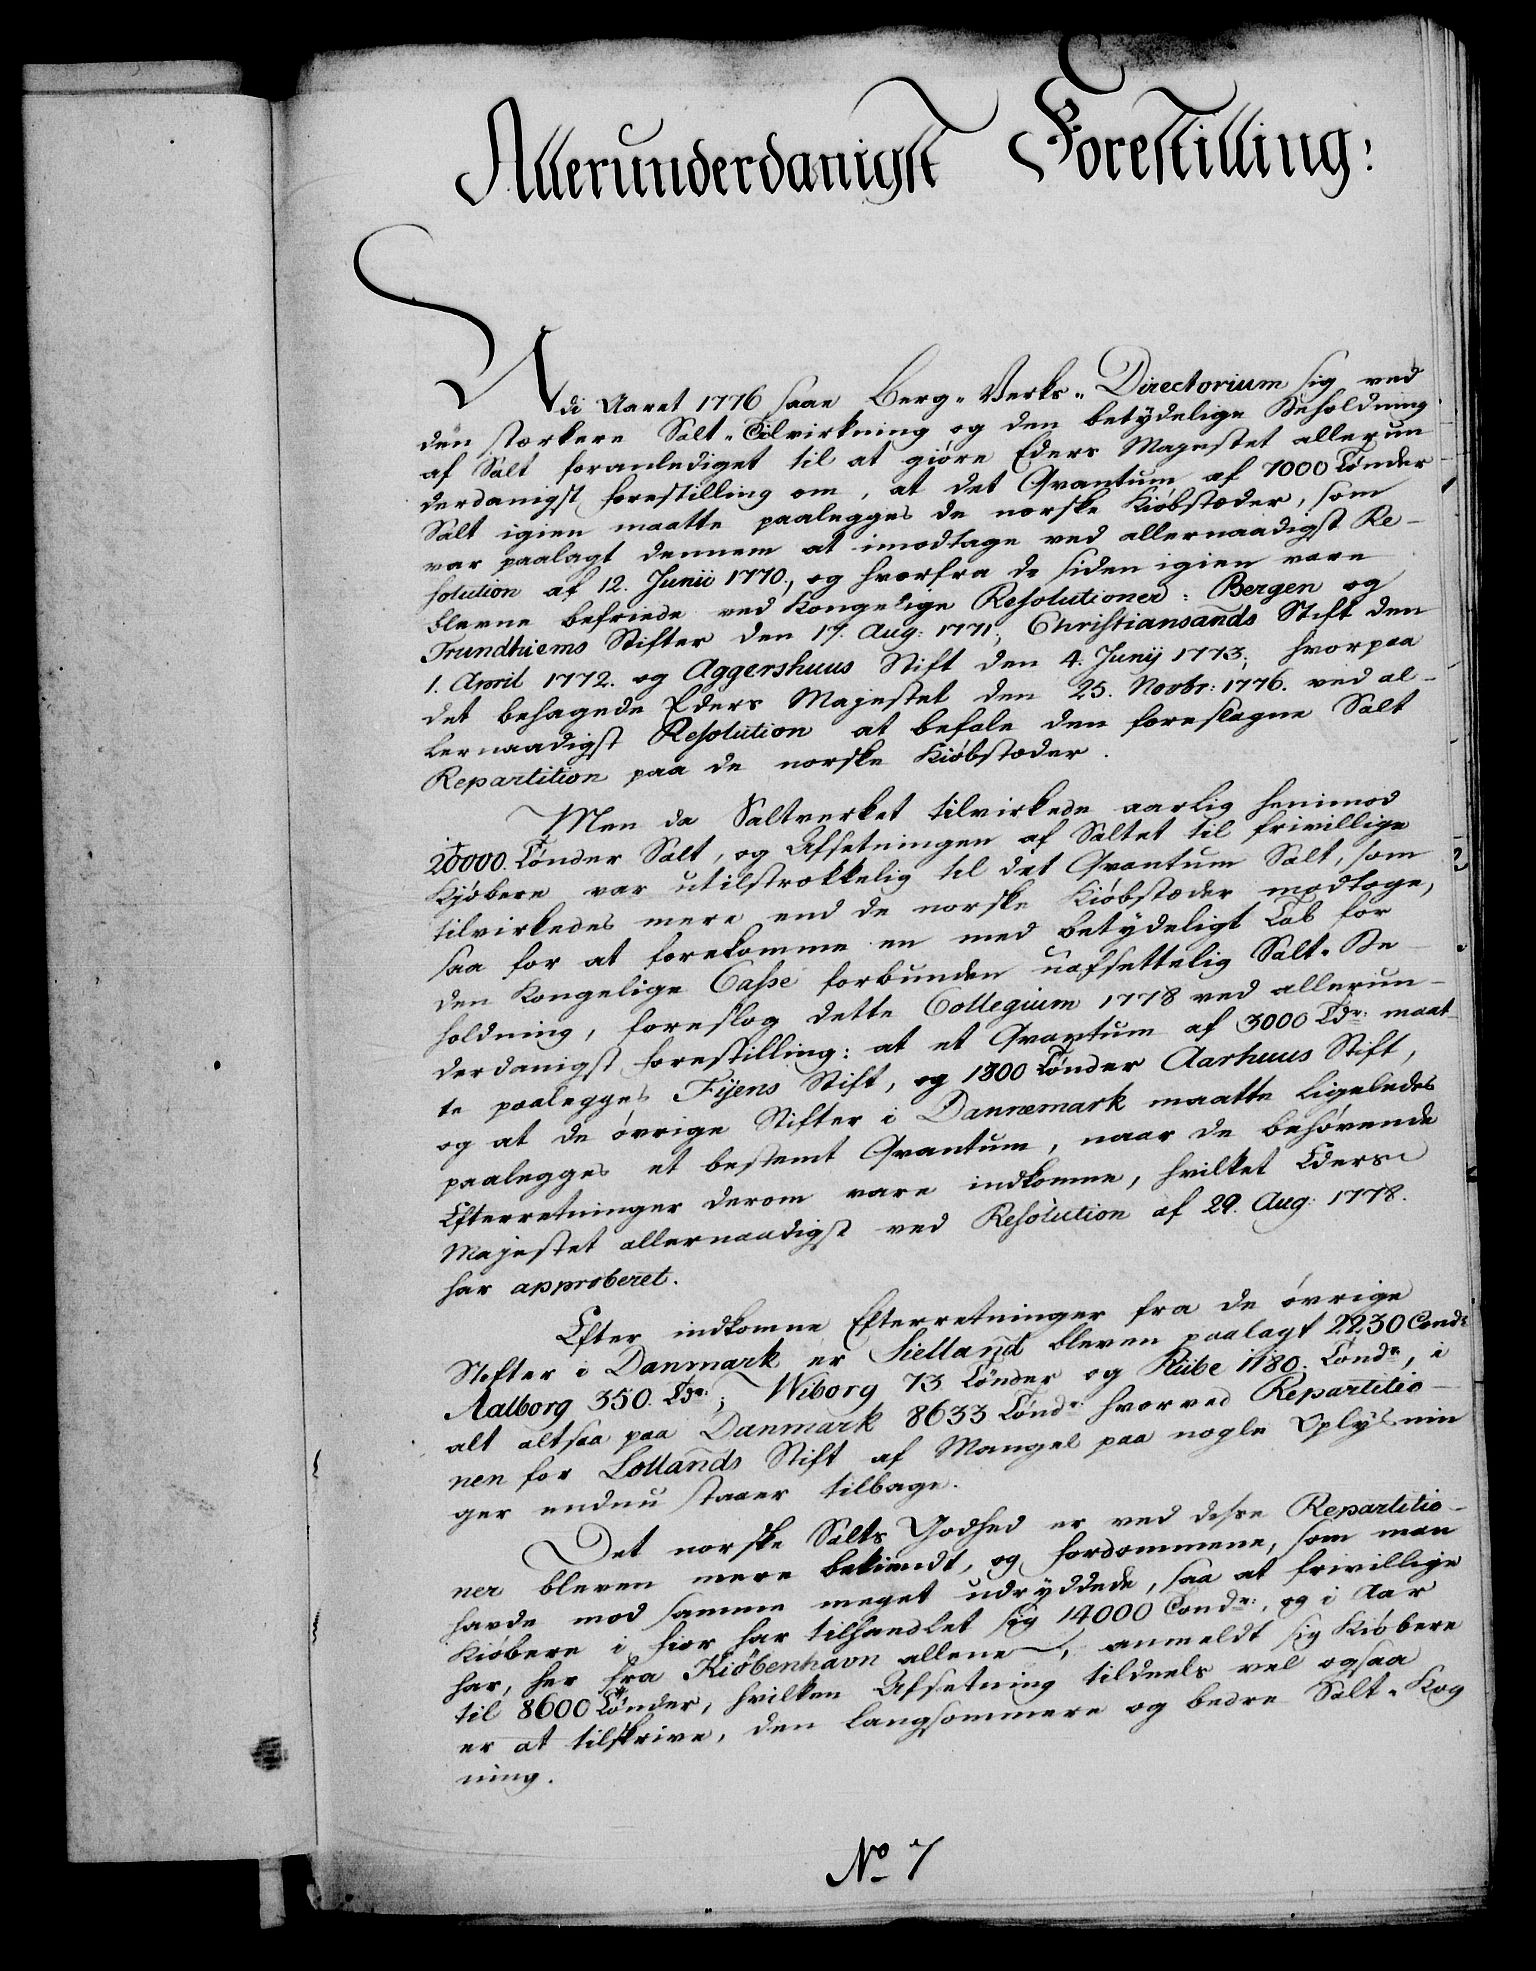 Allerunderdanigst Forestilling:
Udi Aaret 1776 saae Berg-Verks-Directorium sig ved
den stærkere Salt-Tilvirkning og den betydelige Beholdning
af Salt foranlediget til at giøre Eders Majestet allerun
derdanigst forestilling om, at det Qvantum af 7000 Tønder
Salt igien maatte paalegges de norske Kiøbstæder, som
var paalagt dennem at imodtage ved allernaadigst Re-
solution af 12. Junii 1770, og hvorfra de siden igien vare
blevne befriede ved Kongelige Resolutioner: Bergen og
Trundhiems Stifter den 17. Aug: 1771; Christiansands Stift den
1. April 1772. og Aggershuus Stift den 4. Junij 1773; hvorpaa
det behagede Eders Majestet den 25. Novbr: 1776. ved al-
lernaadigst Resolution at befale den foreslagne Salt
Repartition paa de norske Kiøbstæder.
Men da Saltverket tilvirkede aarlig henimod
20000 Tønder Salt, og Afsetningen af Saltet til frivillige
Kjøbere var utilstrækkelig til det Qvantum Salt, som
tilvirkedes mere end de norske Kiøbstæder modtoge,
saa for at forekomme en med betydeligt Tab for
den Kongelige Casse forbunden uafsettelig Salt-Be
holdning, foreslog dette Collegium 1778 ved allerun-
derdanigst forestilling: at et Qvantum af 3000 Tdr: maat
te paalegges Fyens Stift, og 1800 Tønder Aarhuus Stift,
og at de øvrige Stifter i Dannemark maatte ligeledes
paalegges et bestemt Qvantum, naar de behøvende
Efterretninger derom vare indkomne, hvilket Eders
Majestet allernaadigst ved Resolution af 29. Aug: 1778.
har approberet.
Efter indkomne Efterretninger fra de øvrige
Stifter i Danmark er Sielland bleven paalagt 2230 Tondr
Aalborg 350. Tdr:; Wiborg 73 Tønder og Riibe 1180. Tondr, i
alt altsaa paa Danmark 8633 Tøndr: hvorved Repartitio-
nen for Lollands Stift af Mangel paa nogle Oplysnin
ger endnu staaer tilbage.
Det norske Salts Godhed er ved disse Repartitio-
ner bleven mere bekiendt, og fordommene, som man
havde mod samme meget udryddede, saa at frivillige
Kiøbere i fior har tilhandlet sig 14000 Tondr:, og i Aar
har, her fra Kiøbenhavn allene, anmeldt sig Kiøbere
til 8600 Tønder, hvilken Afsetning tildeels vel ogsaa
er at tilskrive, den langsommere og bedre Salt-Kog
ning.
No 7